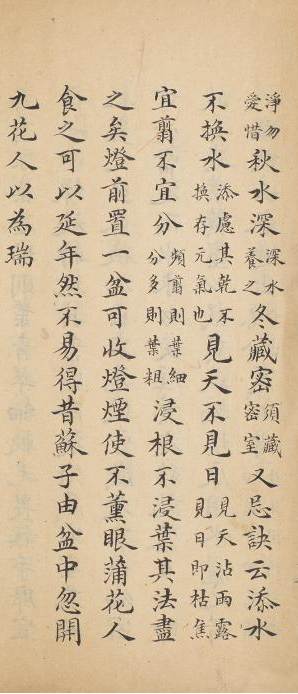 淨勿愛惜秋水深深水養之冬藏密須藏密室又忌訣云添水
不換水添慮其乾不換存元氣也見天不見日見天沾雨露見日即枯焦
宜翦不宜分頻翦則葉細分多則葉粗浸根不浸葉其法盡
之矣燈前置一盆可收燈煙使不薰眼蒲花人
食之可以延年然不易得昔蘇子由盆中忽開
九花人以為瑞